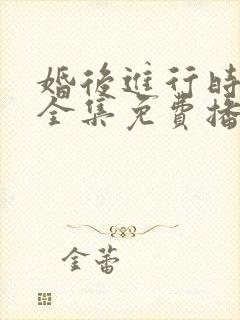 婚後進行時
全集免費播
金蕾